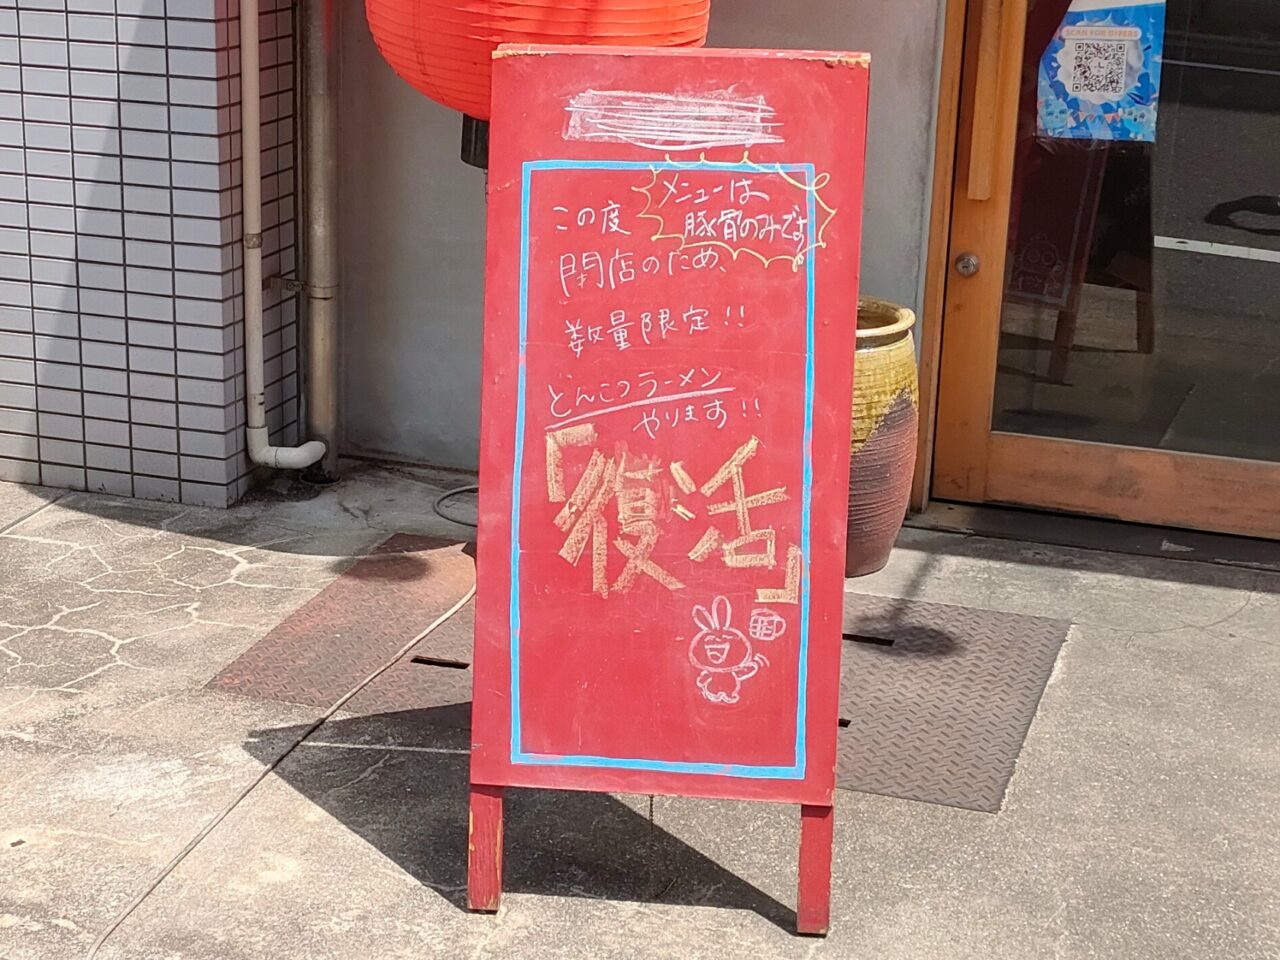 SCAN FOR OFFERS
メニューは
豚骨のみです
この度
閉店のため、
数量限定!!
とんこつラーメン
やります!!
「復活」